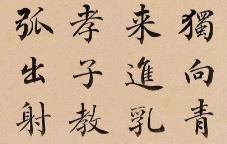 獨向青
来進乳
孝子教
弧出射